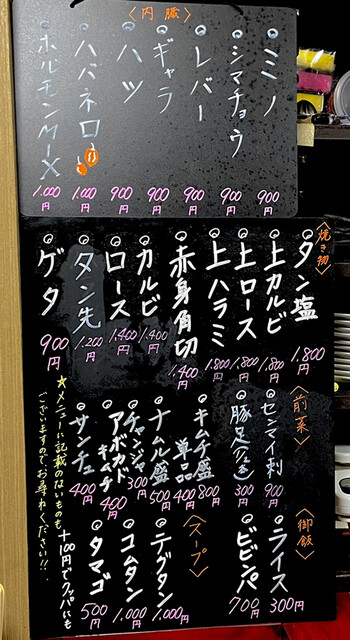 〈内臓〉
ミノ 900円
シマチョウ 900円
レバー 900円
ギャラ 900円
ハツ 900円
ハバネロ 1.000円
ホルモンMIX 1.000円
〈焼き物〉
タン塩 1,800円
上カルビ 1,800円
上ロース 1,800円
上ハラミ 1,800円
赤身角切 1,400円
カルビ 1,400円
ロース 1,400円
タン先 1,200円
ゲタ 900円
〈前菜〉
センマイ刺 900円
豚足 300円
キムチ盛 800円
単品 400円
ナムル盛 500円
チャンジャ 300円
アボカドキムチ 400円
サンチュ 400円
〈御飯〉
ライス 300円
ビビンパ 700円
〈スープ〉
テグタン 1,000円
コムタン 1,000円
タマゴ 500円
+100円でクッパにも
★メニューに記載のないものも
ございますので、お尋ねください!!.